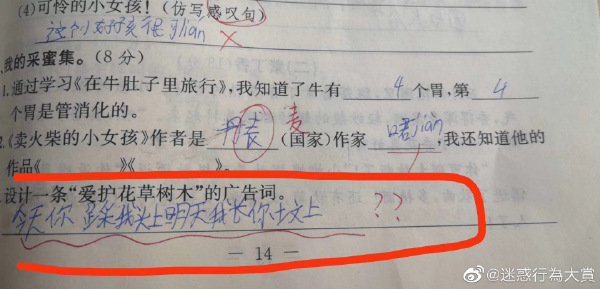 (4)可怜的小女孩!(仿写感叹句)
这个女孩很
我的采蜜集。(8分)
1.通过学习《在牛肚子里旅行》,我知道了牛有 4 个胃,第 4
个胃是管消化的。
2.《卖火柴的小女孩》作者是 丹麦 (国家)作家 ,我还知道他的
作品《 》《 》。
设计一条“爱护花草树木”的广告词。
今天你踩我头上明天我长你坟上 ??
— 14 —
@迷惑行為大賞